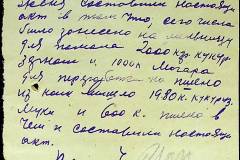 составили настоящ
акт в том что, сего числа
было завезено на мельницу
для помола 2000 кгр. кукур
и 1000 к Могара
для на пшено
из них вышло 1980 к. кукуруз.
муки и 600 к. пшено в
чем и составили настоящ
акт.